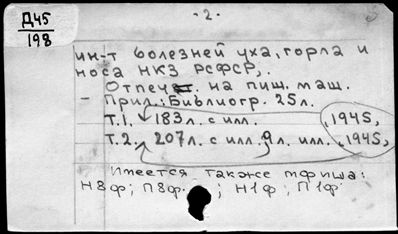 Д45
198
- 2 -
ин-т болезней уха, горла и
носа НКЗ РСФСР,.
Отпеч. на пиш. маш.
- Прил.: Библиогр. 25л.
Т.1. 183л. с илл. , 1945,
Т.2. 207л. с илл. 9л. илл. , 1945,
Имеется также мфиша:
Н8ф; П8ф. ; Н1ф; П1ф